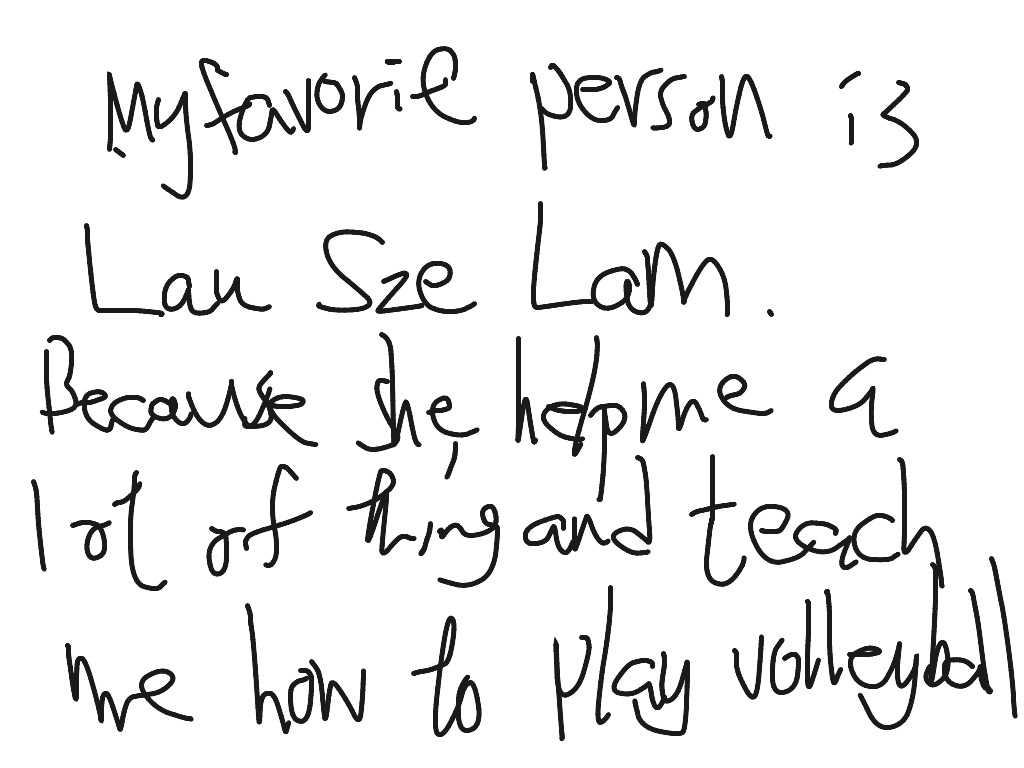 My favorite person is
Lau Sze Lam.
Because she, help me a
lot of thing and teach
me how to play volleyball